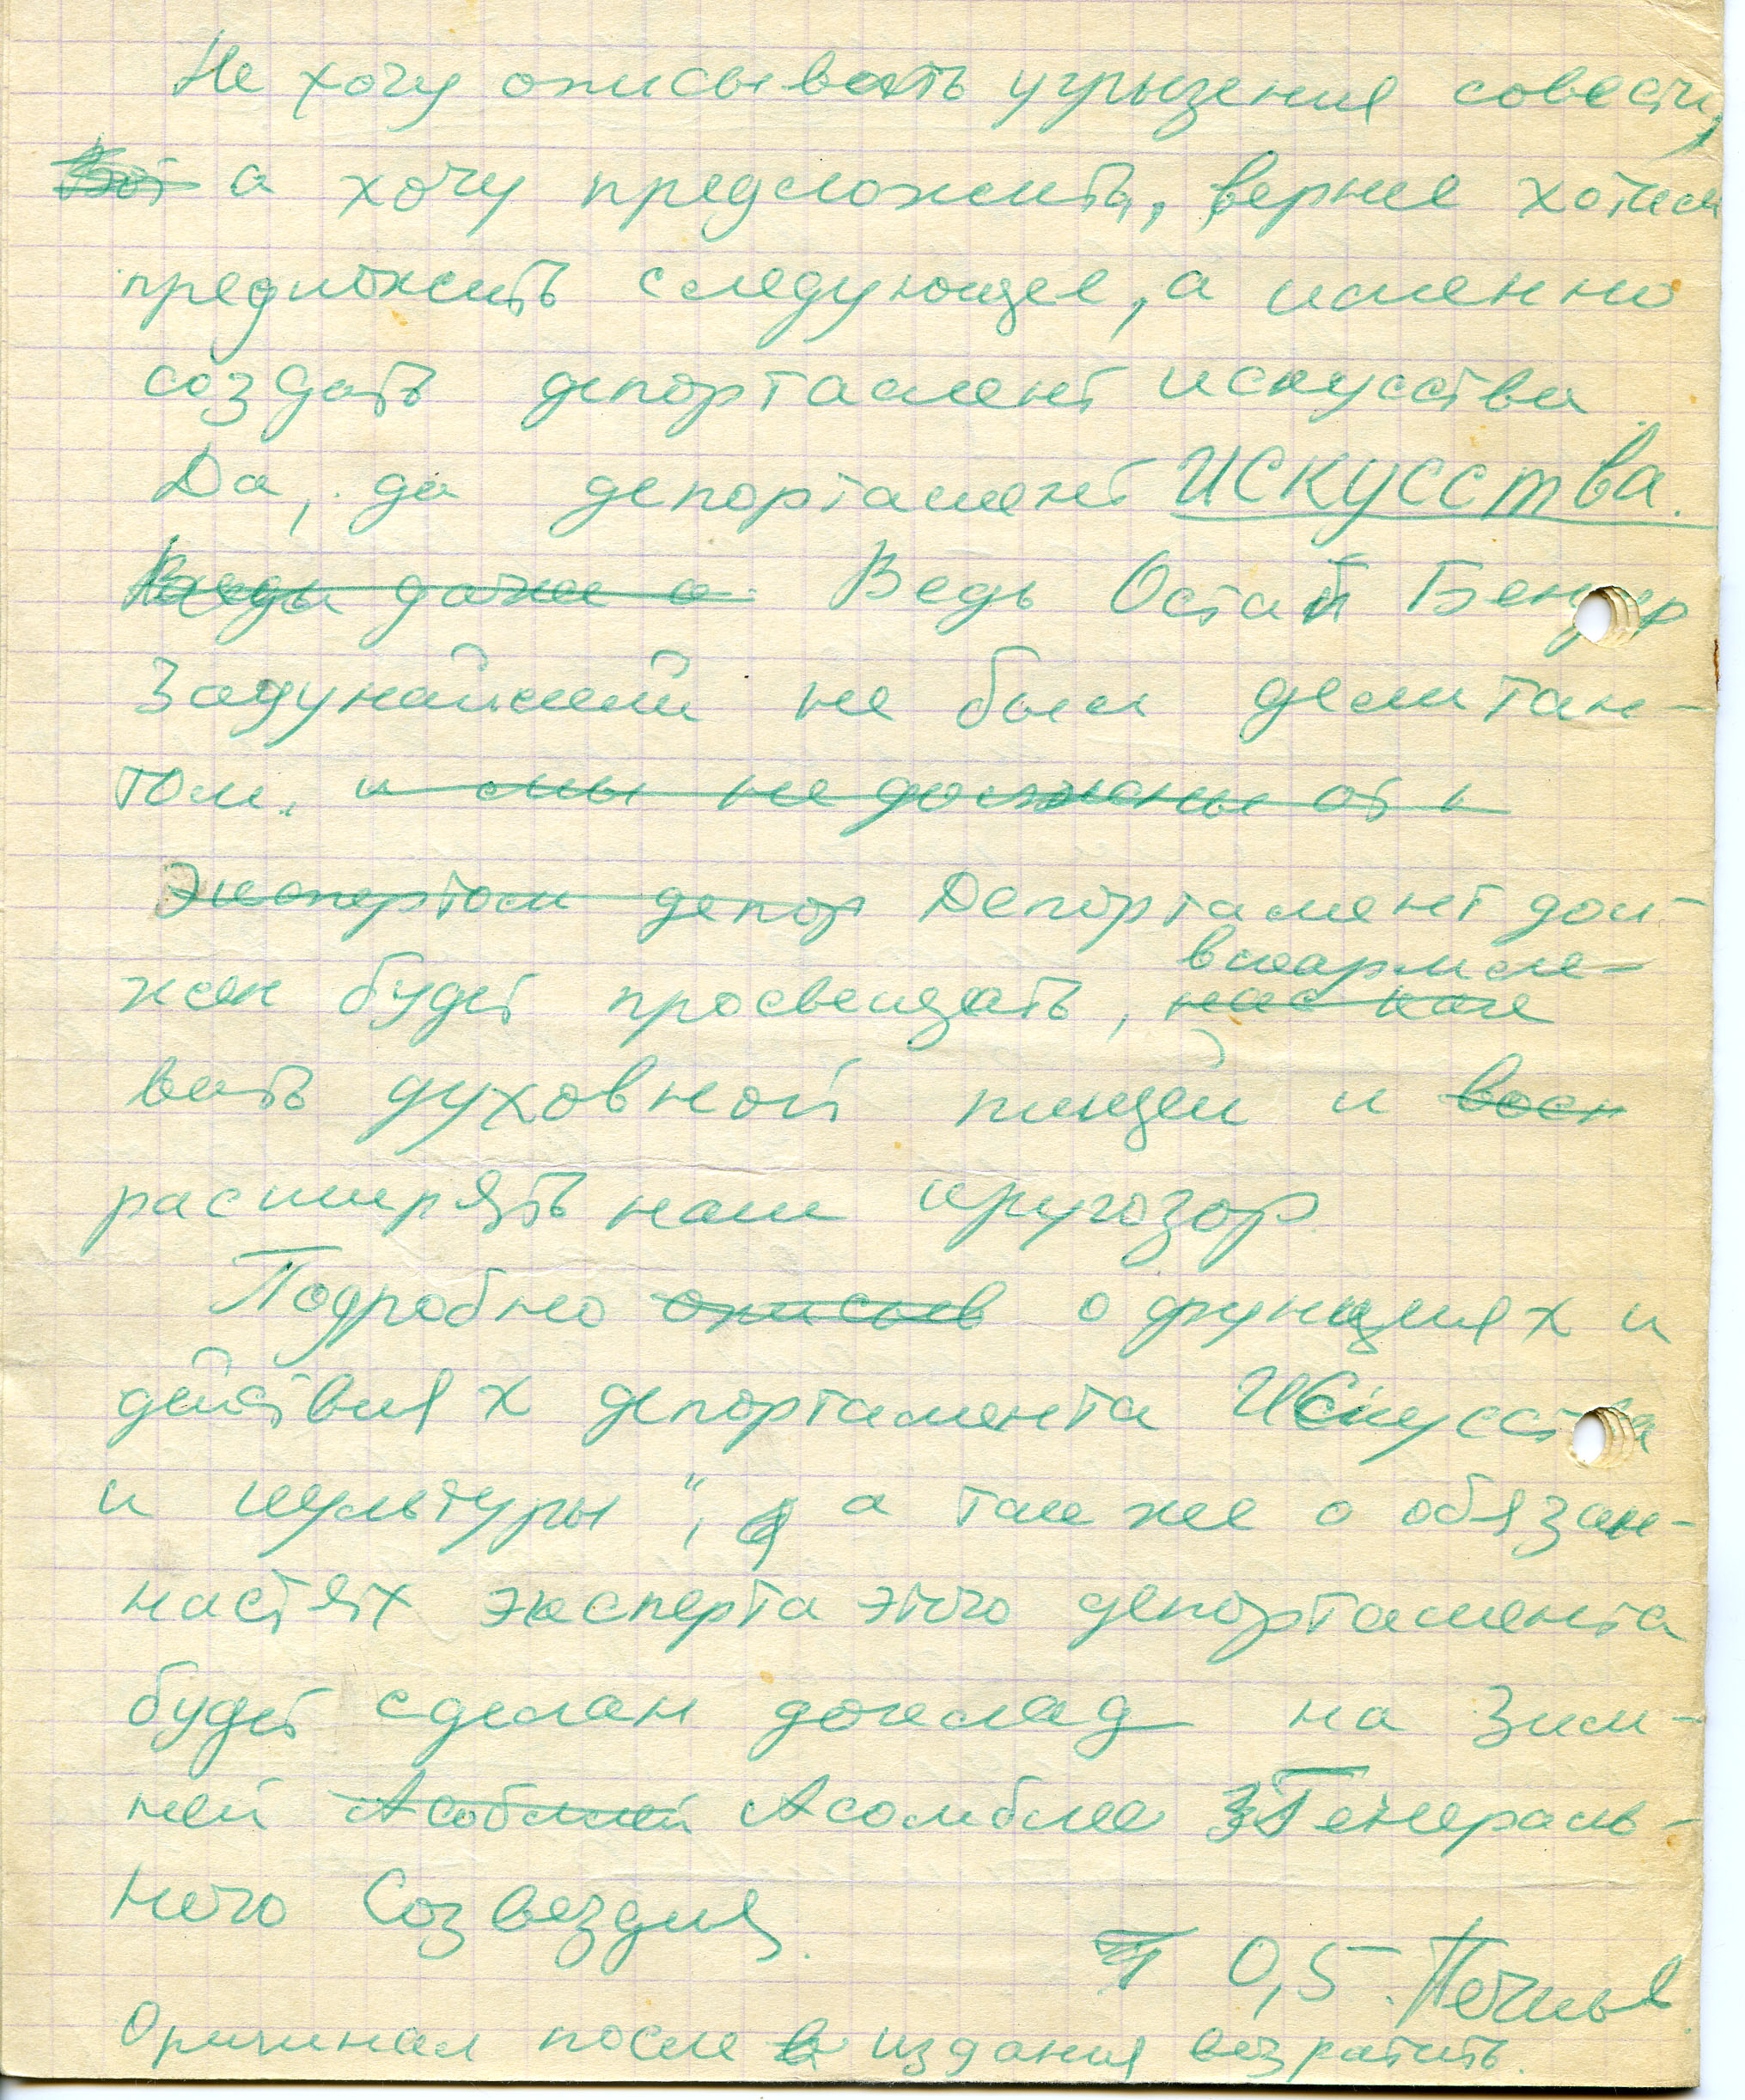 Не хочу описывать угрызения совести,
~~Вот~~ а хочу предложить, верне хотим
предложить следующее, а именно
создать депортамент искусства
Да, да депортамент ИСКУССТВа.
даже о Ведь Остап Бендер
Задунайский не был делитан-
том. ~~и мы не должны от~~
~~Экспертом депор~~ Депортамент дол-
вскармли-
жен будет просвещать,
вать духовной пищей и ~~восп~~
расширять наш кругозор.
Подробно ~~описыв~~ о функциях и
действиях депортамента Искусства
и культуры", а так же о обязан-
ностях эксперта этого депортамента
будет сделан доклад на Зим-
ней ~~Асоблией~~ Асомблее Генераль-
ного Созвездия.
0,5. Печныв
Оричинал после издания возратить.